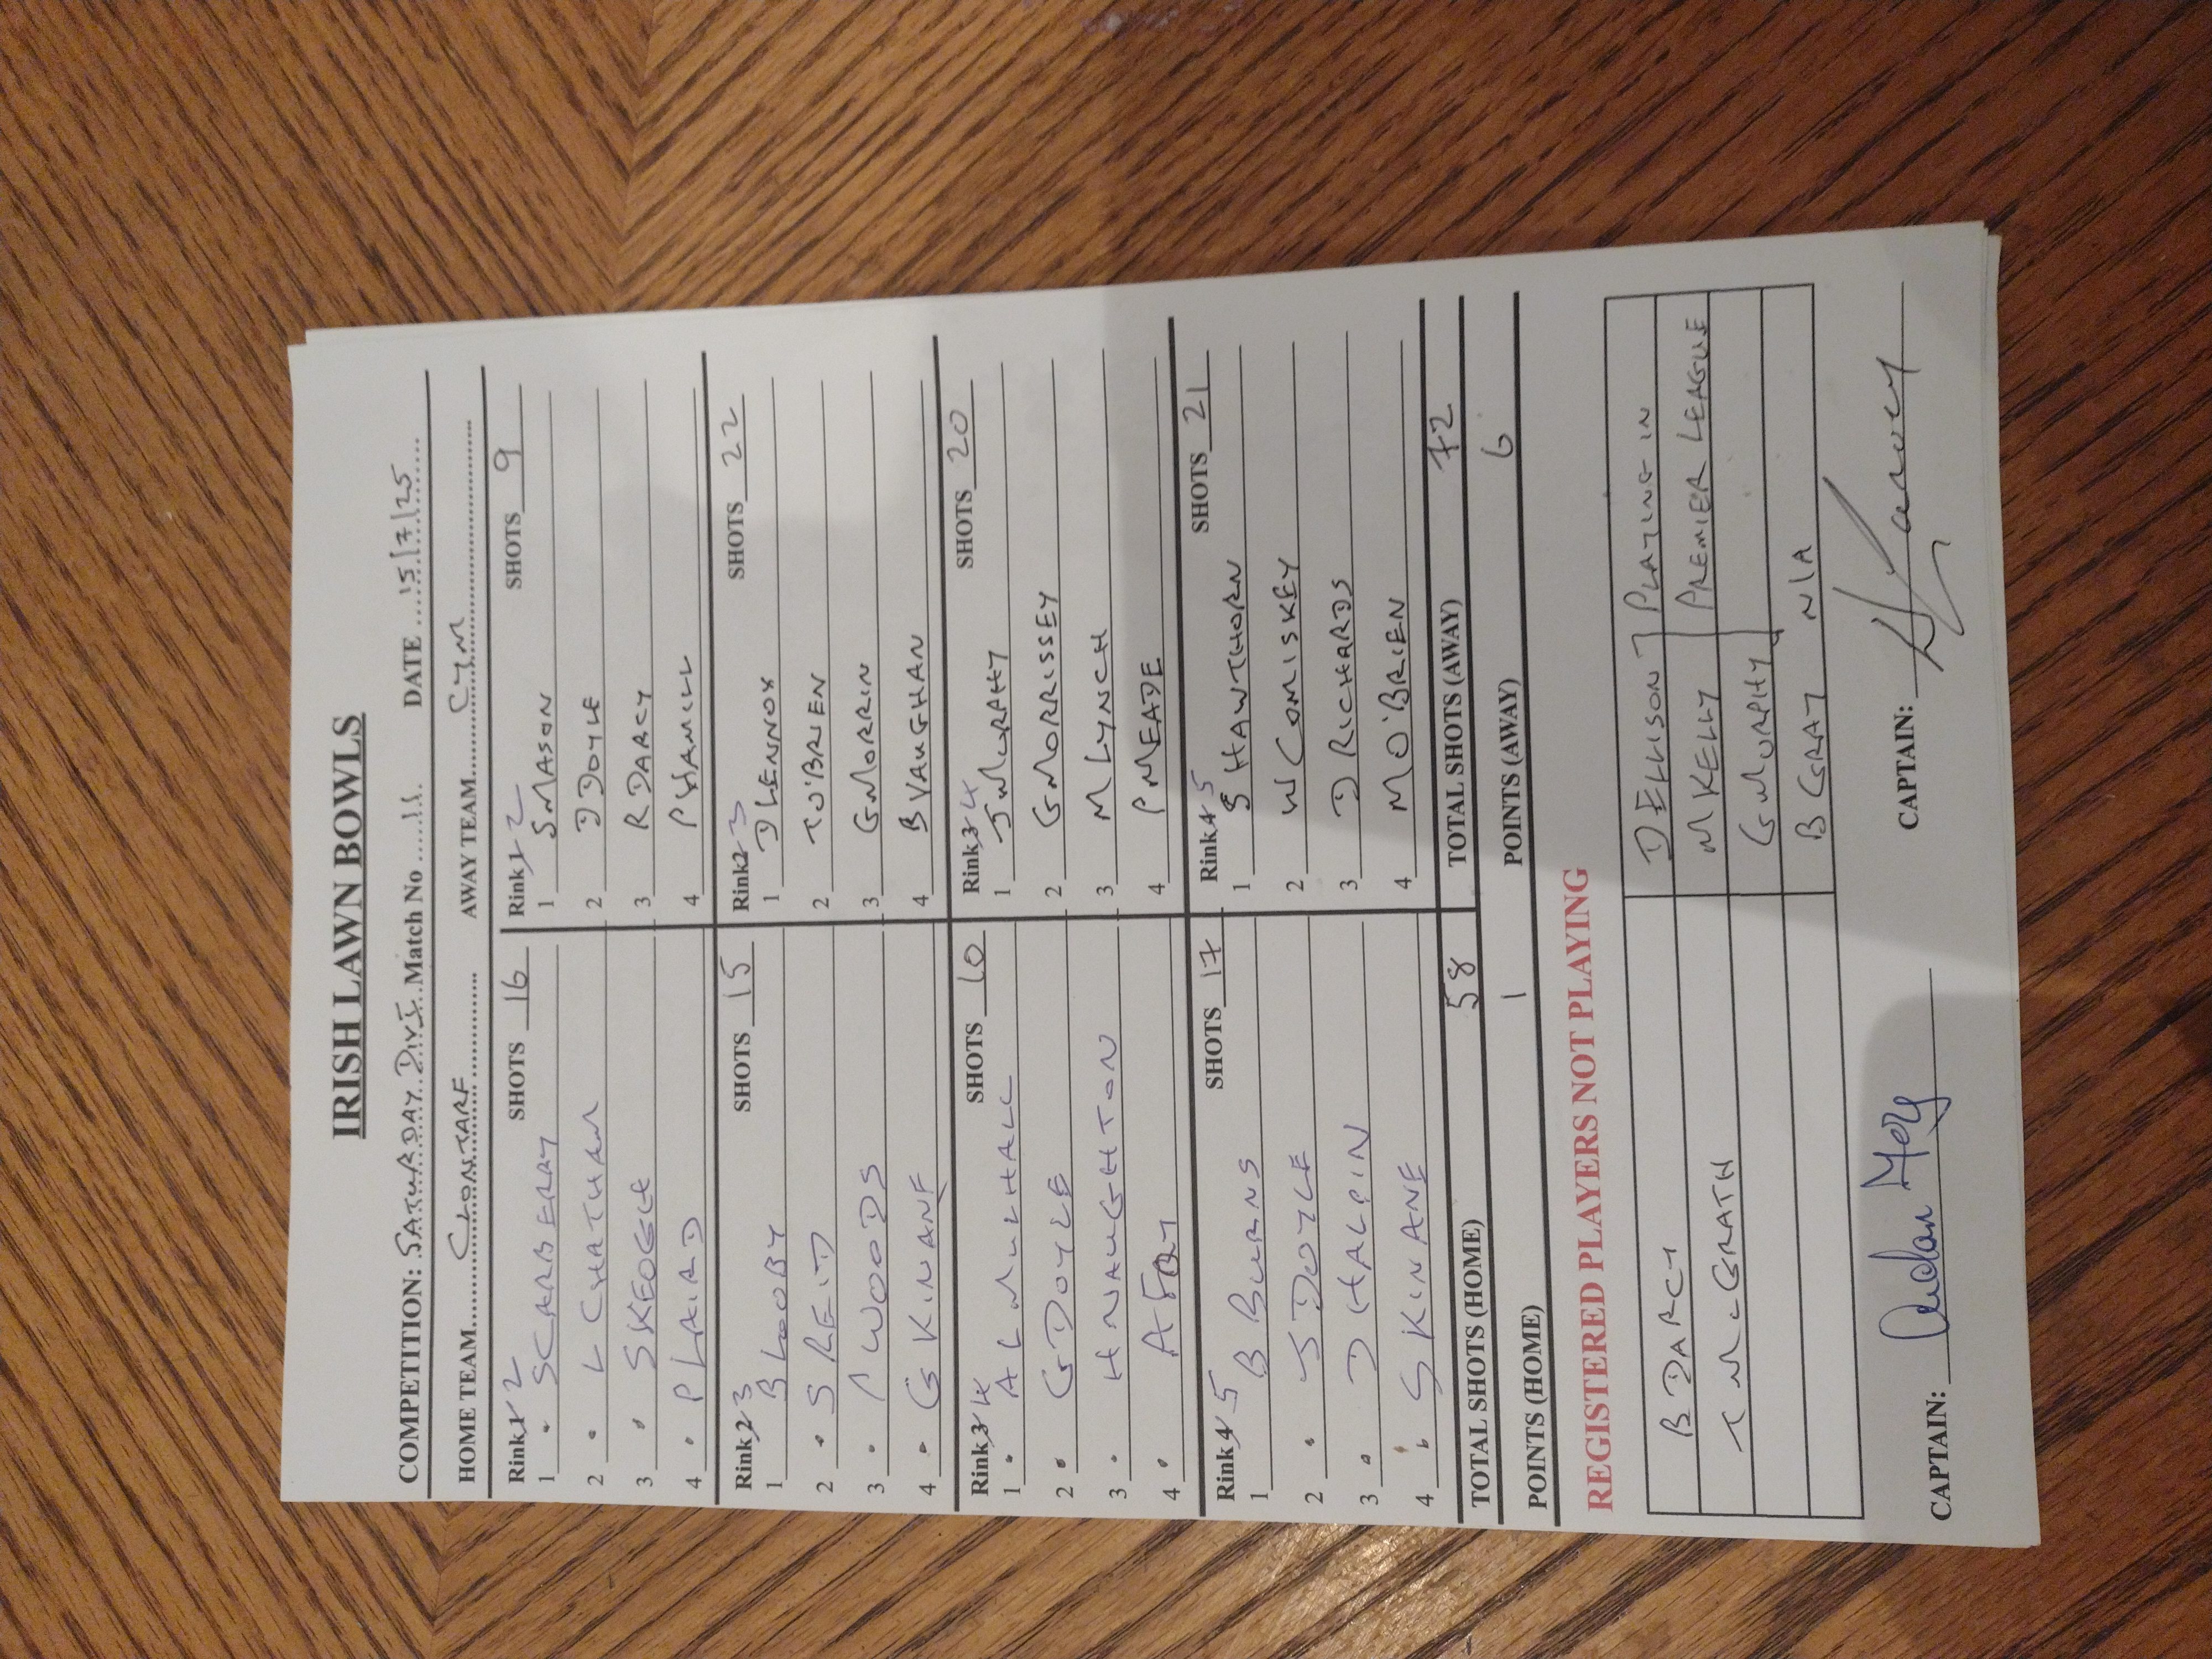 IRISH LAWN BOWLS
COMPETITION: SATURDAY DIV I Match No ....11. DATE ....15/7/25......
HOME TEAM......CLONTARF............ AWAY TEAM........CYM........................
Rink 1 2 SHOTS 16 Rink 1 2 SHOTS 9
1 S CARBERRY 1 S MASON
2 L CHATHAM 2 D DOYLE
3 S KEOGH 3 R DARCY
4 P LAIRD 4 P HAMILL
Rink 2 3 SHOTS 15 Rink 2 3 SHOTS 22
1 B LOOBY 1 D LENNOX
2 S REID 2 T O'BRIEN
3 P WOODS 3 G MORRIN
4 G KINANE 4 B VAUGHAN
Rink 3 4 SHOTS 10 Rink 3 4 SHOTS 20
1 AL MULHALL 1 J MURPHY
2 G DOYLE 2 G MORRISSEY
3 H NAUGHTON 3 M LYNCH
4 A 4 P MEADE
Rink 4 5 SHOTS 17 Rink 4 5 SHOTS 21
1 B BURNS 1 S HAWTHORN
2 J DOYLE 2 W COMISKEY
3 D HALPIN 3 D RICHARDS
4 S KINANE 4 M O'BRIEN
TOTAL SHOTS (HOME) 58 TOTAL SHOTS (AWAY) 72
POINTS (HOME) 1 POINTS (AWAY) 6
REGISTERED PLAYERS NOT PLAYING
B DARCY D ELLISON PLAYING IN
T McGRATH M KELLY PREMIER LEAGUE
G MURPHY
B GRAY N/A
CAPTAIN: CAPTAIN: